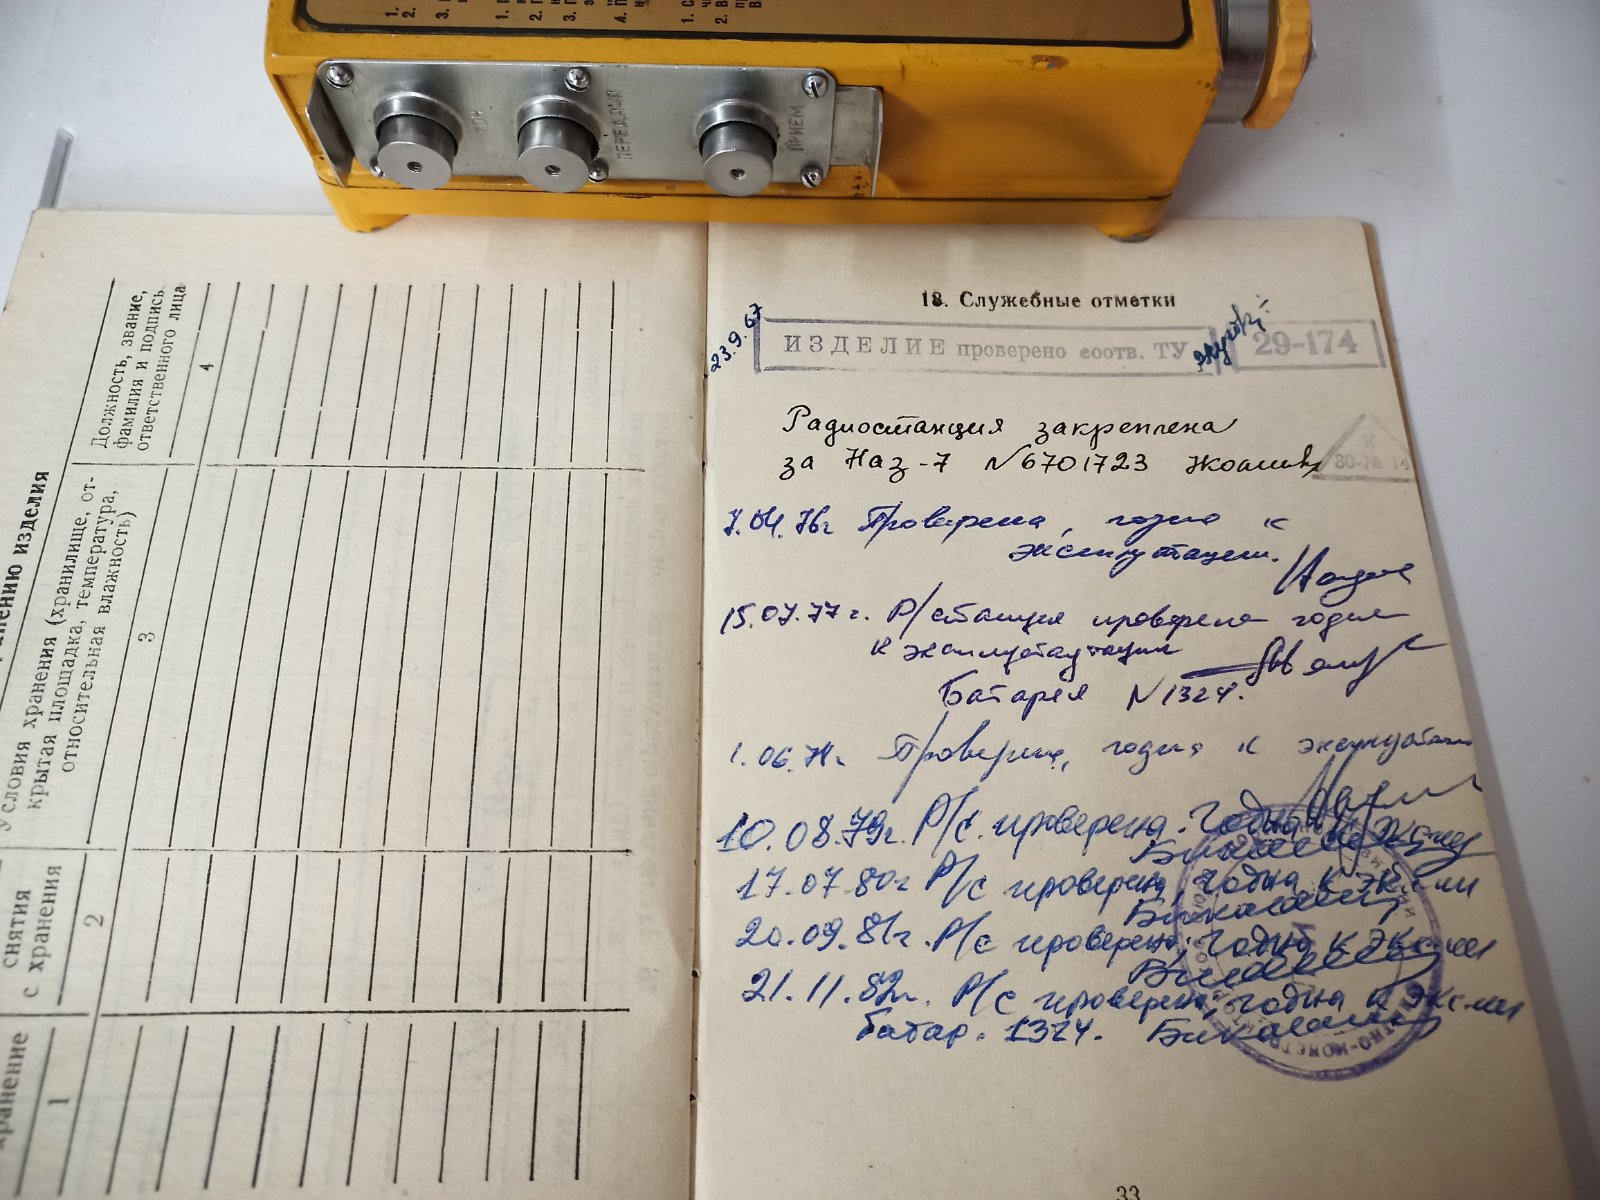 ТОН
ПЕРЕДАЧА
ПРИЕМ
хранению изделия
Условия хранения (хранилище, от-
крытая площадка, температура,
относительная влажность)
Должность, звание,
фамилия и подпись
ответственного лица
снятия
с хранения
хранение
1
2
3
4
18. Служебные отметки
23.9.67
ИЗДЕЛИЕ проверено соотв. ТУ
29-174
К
30-№ 14
Радиостанция закреплена
за Наз-7 №6701723
7.04.76г Проверена, годна к
эксплуатации.
15.07.77г. Р/станция проверена годна
к эксплуатации
Батарея №1324.
1.06.78г. Проверена, годна к эксплуатации
10.08.79г. Р/с. проверена. Годна к эксплу
17.07.80г Р/с проверена, годна к экспл
20.09.81г. Р/с проверена, годна к экспл
21.11.82г. Р/с проверена, годна к экспл
батар. 1324.
33